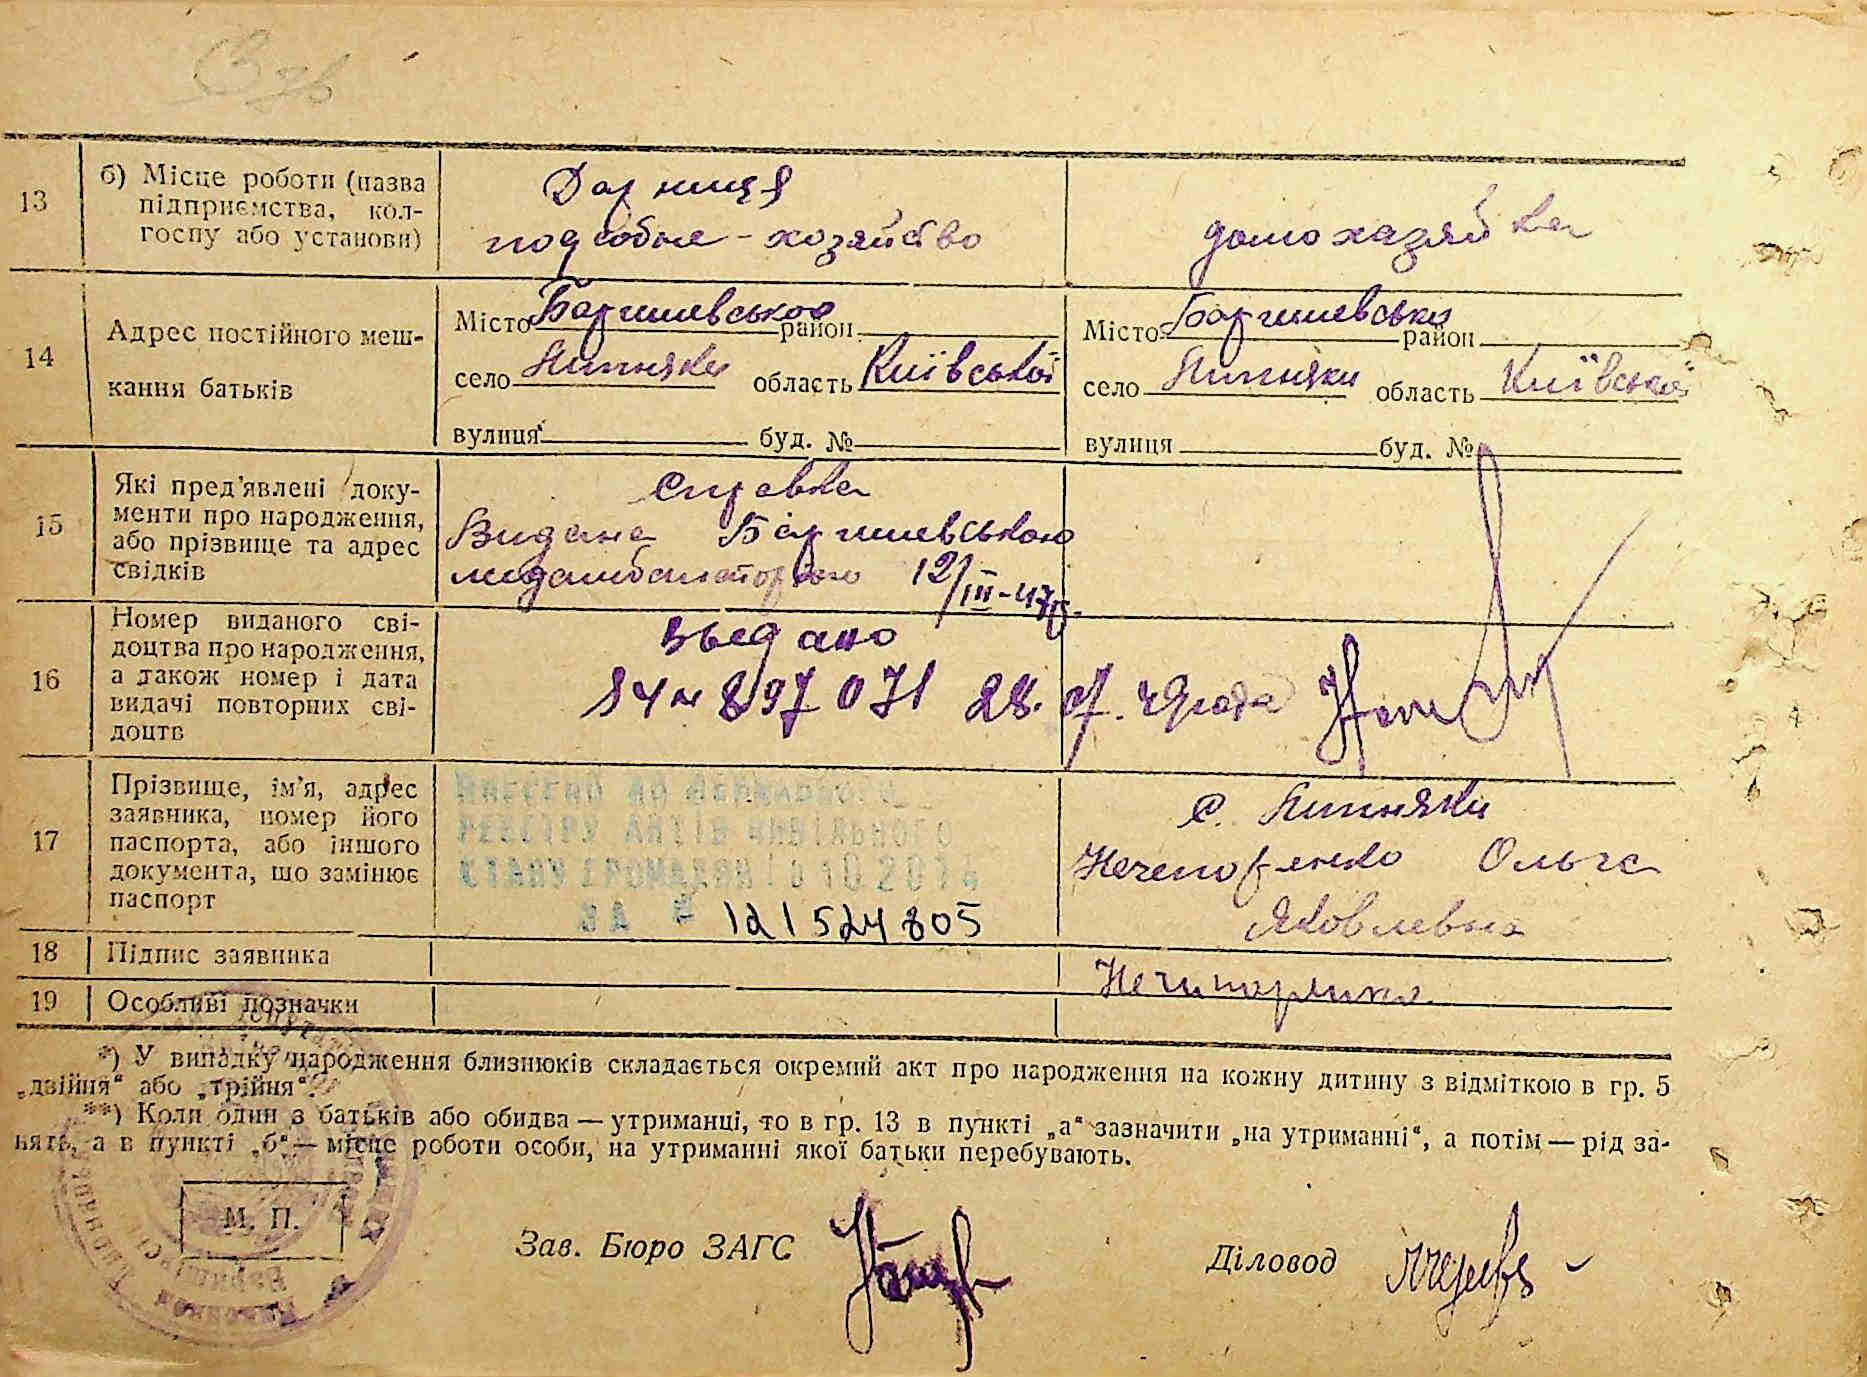 13
б) Місце роботи (назва
підприємства, кол-
госпу або установи)
Дарниця
подсобне - хозяйство
домохазяйка
14
Адрес постійного меш-
кання батьків
Місто Баришевського район
село Липняки область Київської
вулиця буд. №
Місто Баришевський район
село Липняки область Київської
вулиця буд. №
15
Які пред'явлені доку-
менти про народження,
або прізвище та адрес
свідків
Справка
Видана Баришевською
медамбаторією 12/III-47р.
16
Номер виданого сві-
доцтва про народження,
а також номер і дата
видачі повторних сві-
доцтв
897071 28.
17
Прізвище, ім'я, адрес
заявника, номер його
паспорта, або іншого
документа, що замінює
паспорт
ВНЕСЕНО ДО ДЕРЖАВНОГО
РЕЄСТРУ АКТІВ ЦИВІЛЬНОГО
СТАНУ ГРОМАДЯН
ЗА № 121524805
с. Липняки
Нечепоренко Ольга
Яковлевна
18
Підпис заявника
Нечипоренко
19
Особливі позначки
*) У випадку народження близнюків складається окремий акт про народження на кожну дитину з відміткою в гр. 5
„двійня“ або „трійня“.
**) Коли один з батьків або обидва — утриманці, то в гр. 13 в пункті „а“ зазначити „на утриманні“, а потім — рід за-
нять, а в пункті „б“ — місце роботи особи, на утриманні якої батьки перебувають.
М. П.
Зав. Бюро ЗАГС
Діловод